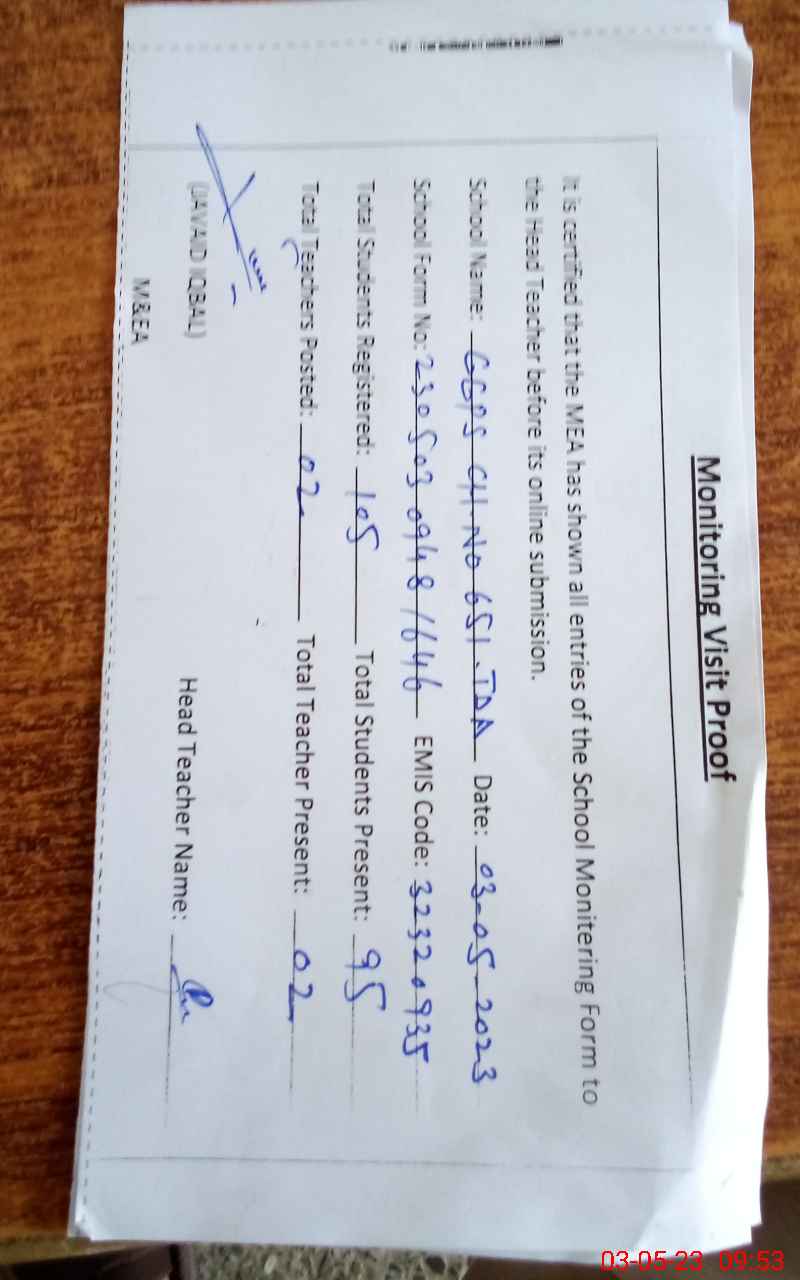 Monitoring Visit Proof
It is certified that the MEA has shown all entries of the School Monitering Form to
the Head Teacher before its online submission.
School Name: GGPS CH NO 651.TDA Date: 03-05-2023
School Form No: 23050309481646 EMIS Code: 32320935
Total Students Registered: 105 Total Students Present: 95
Total Teachers Posted: 02 Total Teacher Present: 02
(JAVAID IQBAL)
M&EA
Head Teacher Name:
03-05-23 09:53